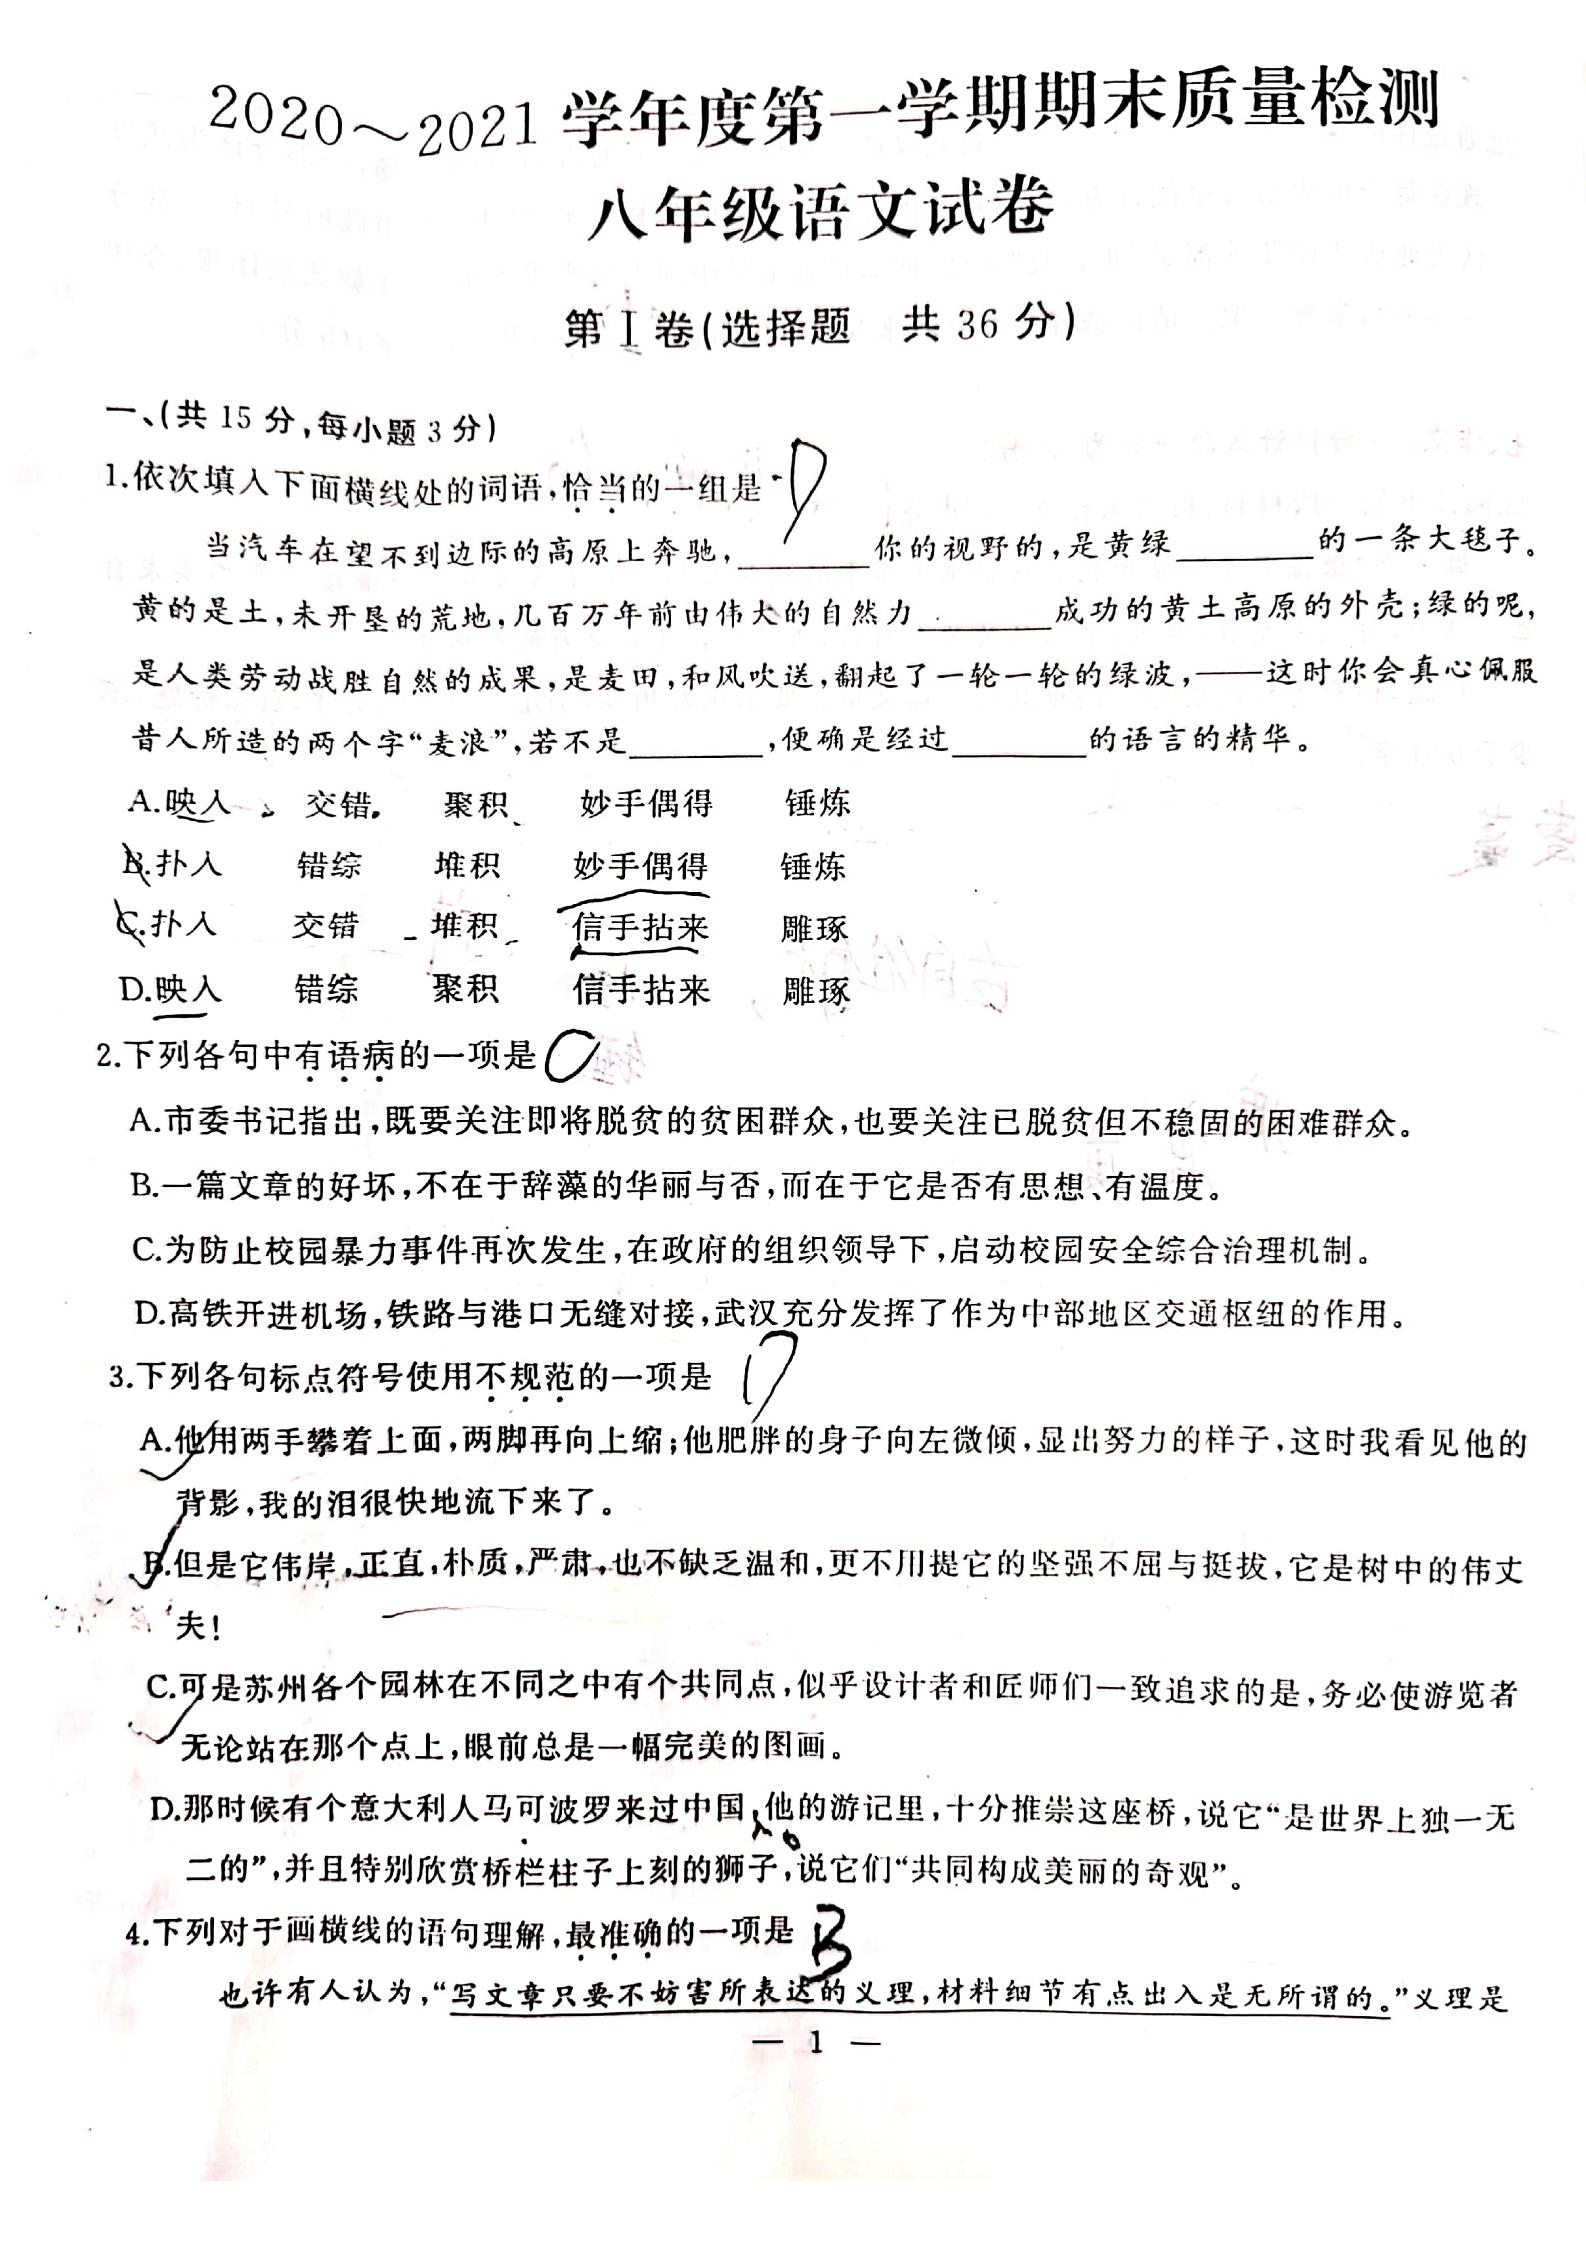 2020～2021学年度第一学期期末质量检测
八年级语文试卷
第Ⅰ卷(选择题 共36分)
一、(共15分,每小题3分)
1.依次填入下面横线处的词语,恰当的一组是 D
当汽车在望不到边际的高原上奔驰,________你的视野的,是黄绿________的一条大毯子。
黄的是土,未开垦的荒地,几百万年前由伟大的自然力________成功的黄土高原的外壳;绿的呢,
是人类劳动战胜自然的成果,是麦田,和风吹送,翻起了一轮一轮的绿波,——这时你会真心佩服
昔人所造的两个字“麦浪”,若不是________,便确是经过________的语言的精华。
A.映入 交错 聚积 妙手偶得 锤炼
B.扑入 错综 堆积 妙手偶得 锤炼
C.扑入 交错 堆积 信手拈来 雕琢
D.映入 错综 聚积 信手拈来 雕琢
2.下列各句中有语病的一项是
A.市委书记指出,既要关注即将脱贫的贫困群众,也要关注已脱贫但不稳固的困难群众。
B.一篇文章的好坏,不在于辞藻的华丽与否,而在于它是否有思想、有温度。
C.为防止校园暴力事件再次发生,在政府的组织领导下,启动校园安全综合治理机制。
D.高铁开进机场,铁路与港口无缝对接,武汉充分发挥了作为中部地区交通枢纽的作用。
3.下列各句标点符号使用不规范的一项是 D
A.他用两手攀着上面,两脚再向上缩;他肥胖的身子向左微倾,显出努力的样子,这时我看见他的
背影,我的泪很快地流下来了。
B.但是它伟岸,正直,朴质,严肃,也不缺乏温和,更不用提它的坚强不屈与挺拔,它是树中的伟丈
夫!
C.可是苏州各个园林在不同之中有个共同点,似乎设计者和匠师们一致追求的是,务必使游览者
无论站在那个点上,眼前总是一幅完美的图画。
D.那时候有个意大利人马可波罗来过中国,他的游记里,十分推崇这座桥,说它“是世界上独一无
二的”,并且特别欣赏桥栏柱子上刻的狮子,说它们“共同构成美丽的奇观”。
4.下列对于画横线的语句理解,最准确的一项是 B
也许有人认为,“写文章只要不妨害所表达的义理,材料细节有点出入是无所谓的。”义理是
— 1 —